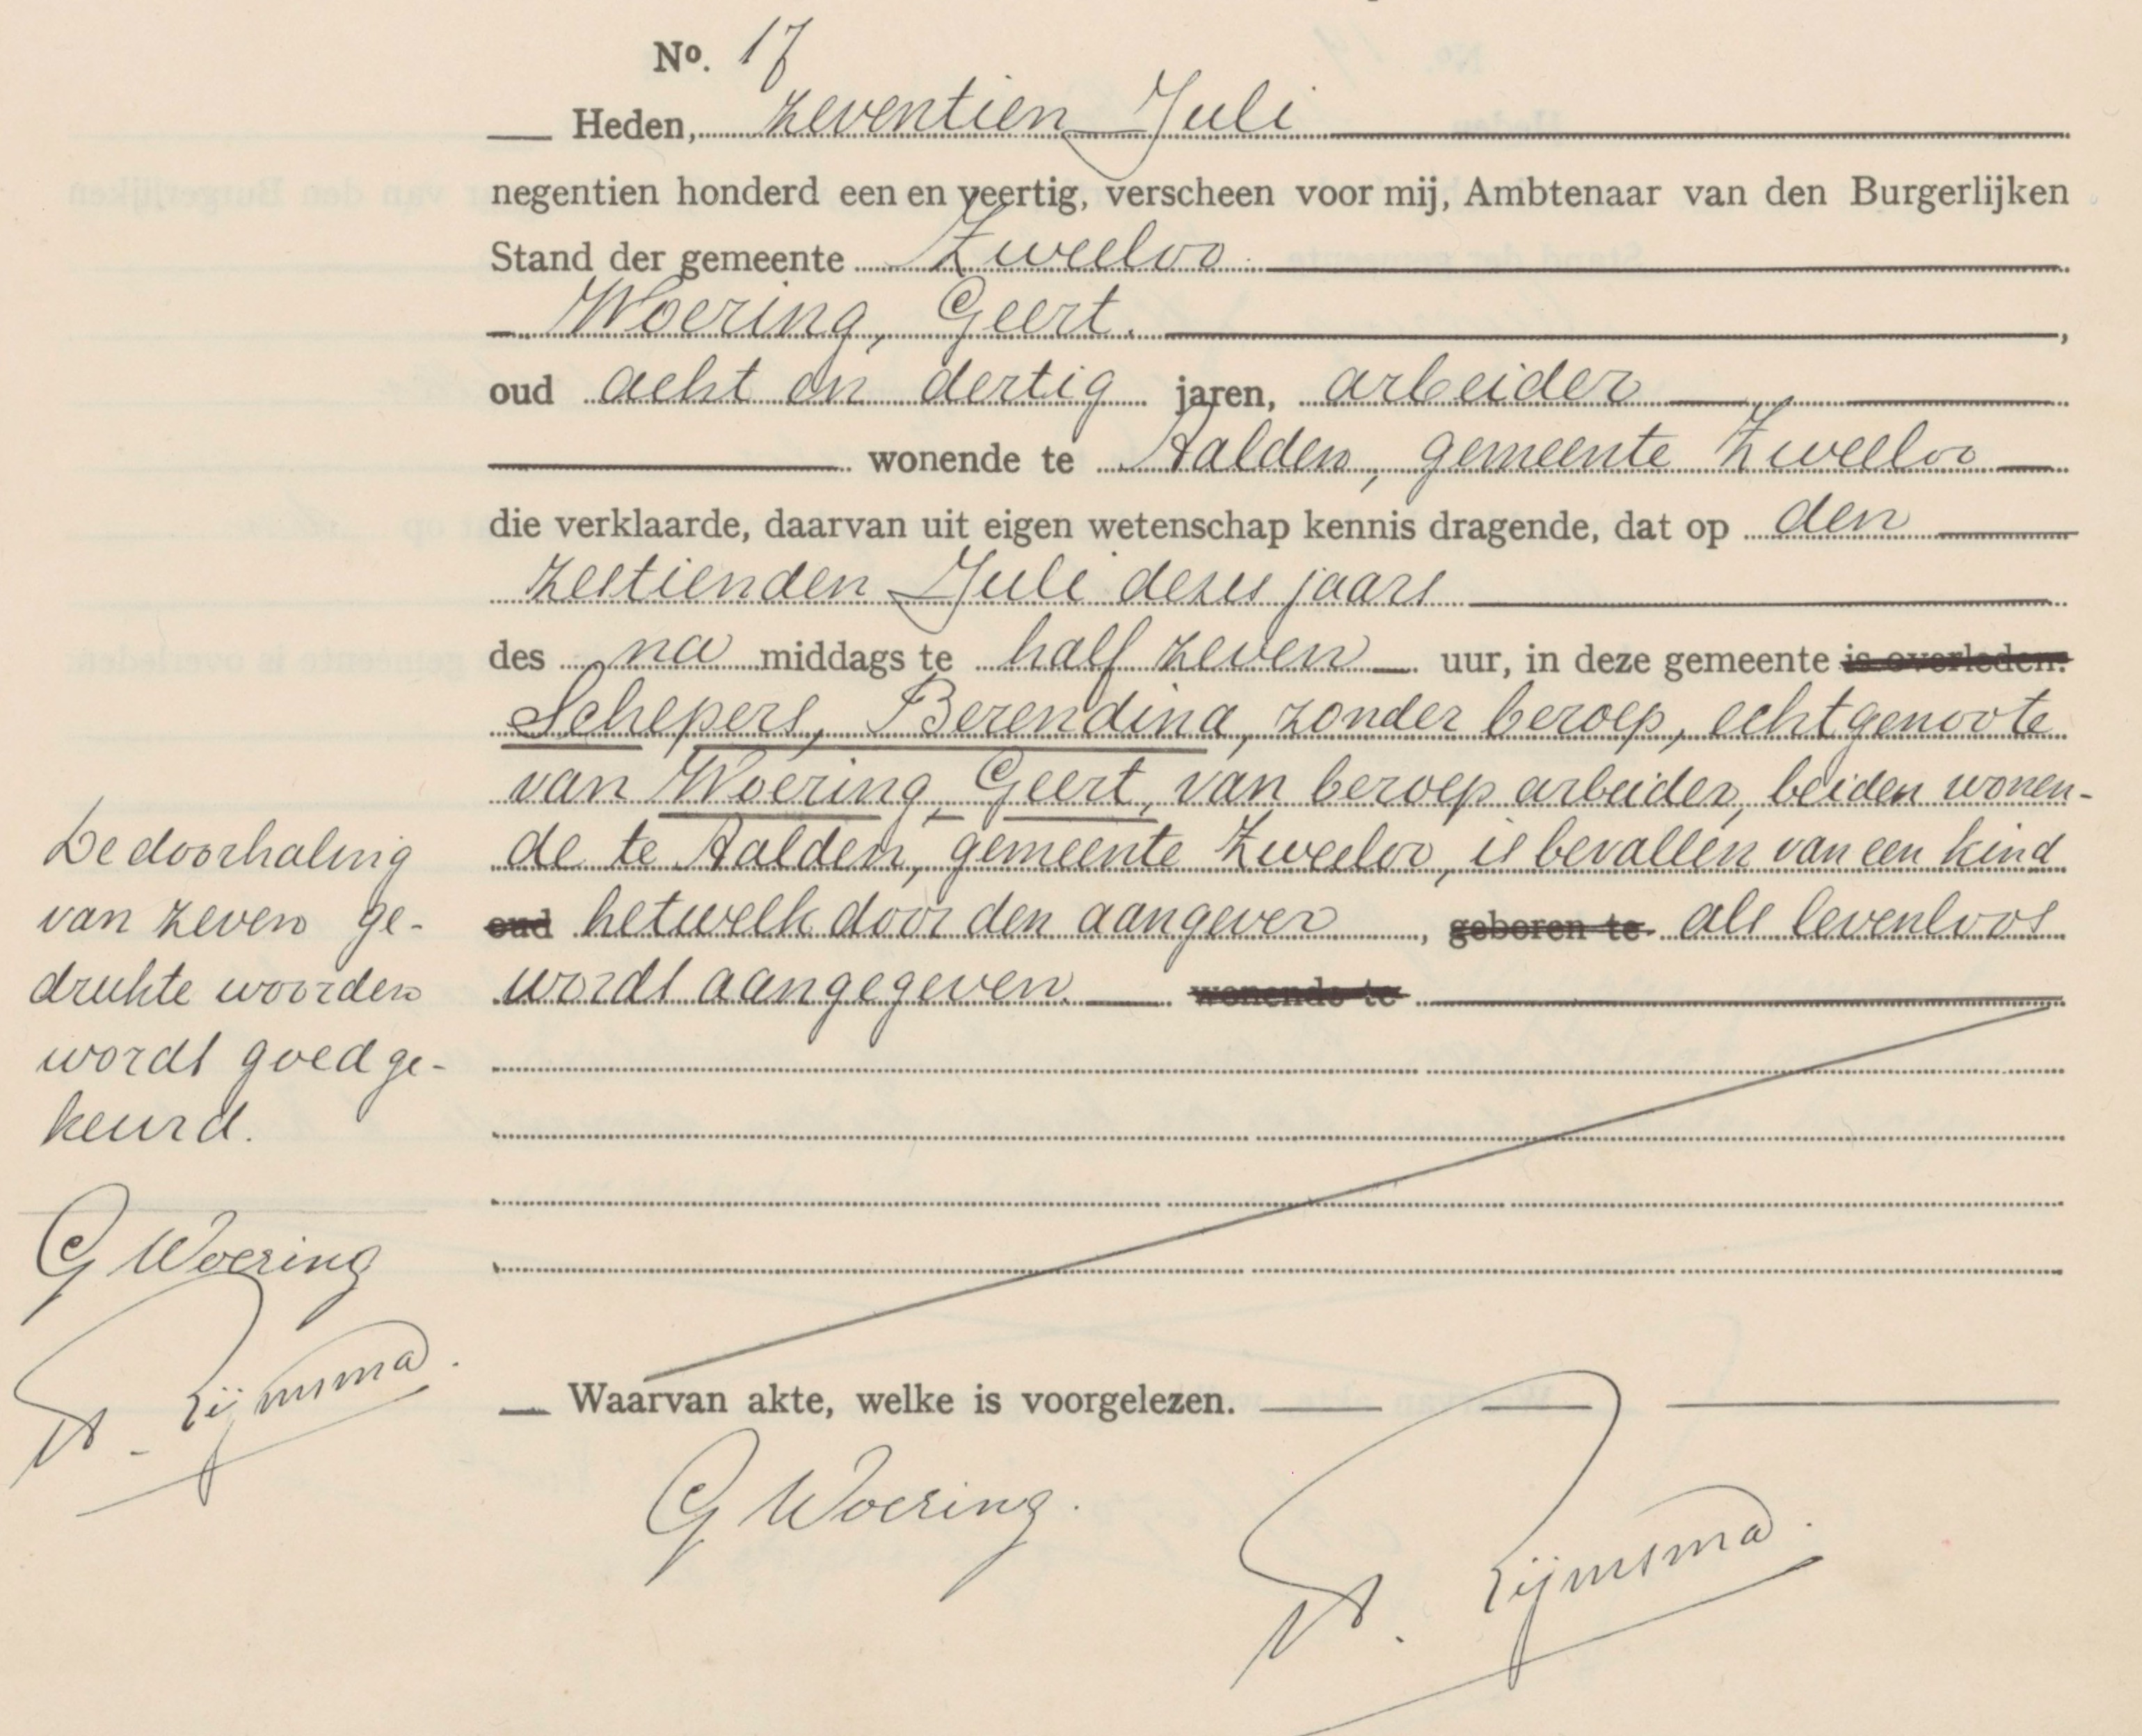 No. 17
Heden, zeventien Juli
negentien honderd een en veertig, verscheen voor mij, Ambtenaar van den Burgerlijken
Stand der gemeente Zweeloo
Woering, Geert.
oud acht en dertig jaren, arbeider
wonende te Aalden, gemeente Zweeloo
die verklaarde, daarvan uit eigen wetenschap kennis dragende, dat op den
zestienden Juli dezes jaars
des na middags te half zeven uur, in deze gemeente is overleden:
Schepers, Berendina, zonder beroep, echtgenoote
van Woering, Geert, van beroep arbeider, beiden wonen-
de te Aalden, gemeente Zweeloo, is bevallen van een kind
oud hetwelk door den aangever, geboren te als levenloos
wordt aangegeven wonende te
De doorhaling
van zeven ge-
drukte woorden
wordt goedge-
keurd.
G Woering
Rijmsma.
Waarvan akte, welke is voorgelezen.
G Woering.
Rijmsma.